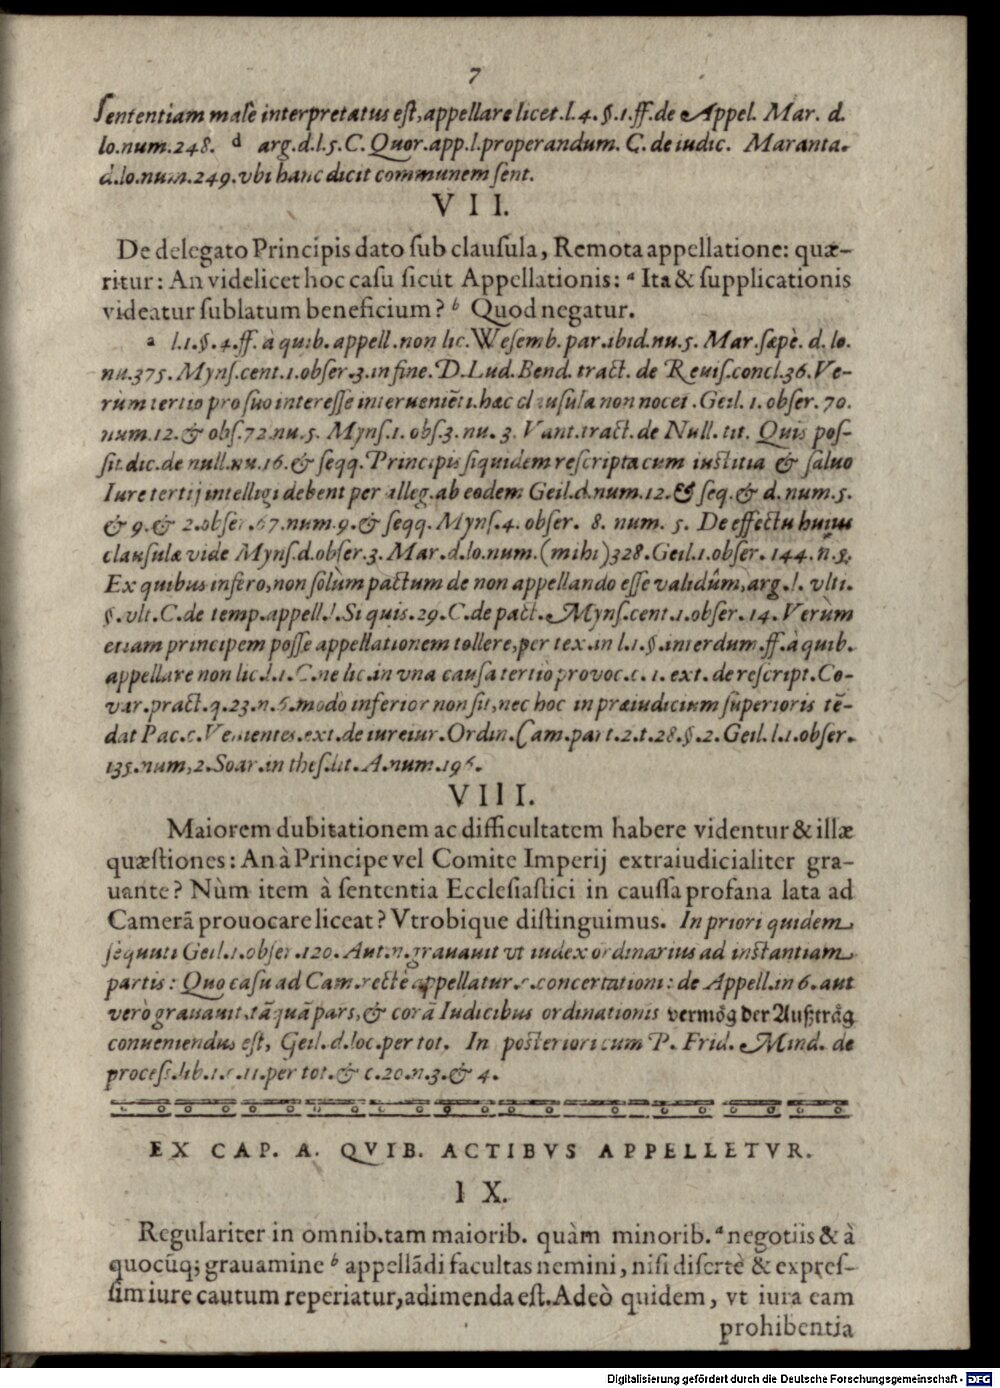 7
sententiam male interpretatus est, appellare licet. l. 4. §. 1. ff. de Appel. Mar. d.
lo. num. 248. d arg. d. l. 5. C. Quor. app. l. properandum. C. de iudic. Maranta.
d. lo. num. 249. vbi hanc dicit communem sent.
VII.
De delegato Principis dato sub clausula, Remota appellatione: quæ-
ritur: An videlicet hoc casu sicut Appellationis: a Ita & supplicationis
videatur sublatum beneficium? b Quod negatur.
a l. 1. §. 4. ff. à quib. appell. non lic. Wesemb. par. ibid. nu. 5. Mar. sæpè. d. lo.
nu. 375. Myns. cent. 1. obser. 3. in fine. D. Lud. Bend. tract. de Reuis. concl. 36. Ve-
rùm tertio pro suo interesse interuenienti. hæc clausula non nocet. Geil. 1. obser. 70.
num. 12. & obs. 72. nu. 5. Myns. 1. obs. 3. nu. 3. Vant. tract. de Null. tit. Quis pos-
sit. dic. de null. nu. 16. & seqq. Principis siquidem rescripta cum iustitia & saluo
Iure tertij intelligi debent per alleg. ab eodem Geil. d. num. 12. & seq. & d. num. 5.
& 9. & 2. obser. 67. num. 9. & seqq. Myns. 4. obser. 8. num. 5. De effectu huius
clausulæ vide Myns. d. obser. 3. Mar. d. lo. num. (mihi) 328. Geil. 1. obser. 144. n. 8.
Ex quibus infero, non solùm pactum de non appellando esse validũm, arg. l. vlti.
§. vlt. C. de temp. appell. l. Si quis. 29. C. de pact. Myns. cent. 1. obser. 14. Verum
etiam principem posse appellationem tollere, per tex. in l. 1. §. interdum. ff. à quib.
appellare non lic. l. 1. C. ne lic. in vna causa tertiò prouoc. c. 1. ext. de rescript. Co-
var. pract. q. 23. n. 6. modo inferior non sit, nec hoc in præiudicium superioris tẽ-
dat Pac. c. Venientes. ext. de iureiur. Ordin. Cam. part. 2. t. 28. §. 2. Geil. l. 1. obser.
135. num, 2. Soar. in thes. lit. A. num. 196.
VIII.
Maiorem dubitationem ac difficultatem habere videntur & illæ
quæstiones: An à Principe vel Comite Imperij extraiudicialiter gra-
uante? Nùm item à sententia Ecclesiastici in caussa profana lata ad
Camerã prouocare liceat? Vtrobique distinguimus. In priori quidem
sequuti Geil. 1. obser. 120. Aut. n. grauauit vt iudex ordinarius ad instantiam
partis: Quo casu ad Cam. rectè appellatur. c. concertationi: de Appell. in 6. aut
verò grauauit, tãquã pars, & corã Iudicibus ordinationis vermög der Außträg
conueniendus est, Geil. d. loc. per tot. In posteriori cum P. Frid. Mind. de
process. lib. 1. c. 11. per tot. & c. 20. n. 3. & 4.
EX CAP. A. QVIB. ACTIBVS APPELLETVR.
IX.
Regulariter in omnib. tam maiorib. quàm minorib. a negotiis & à
quocũq; grauamine b appellãdi facultas nemini, nisi disertè & expres-
sim iure cautum reperiatur, adimenda est. Adeò quidem, vt iura eam
prohibentia
Digitalisierung gefördert durch die Deutsche Forschungsgemeinschaft - DFG